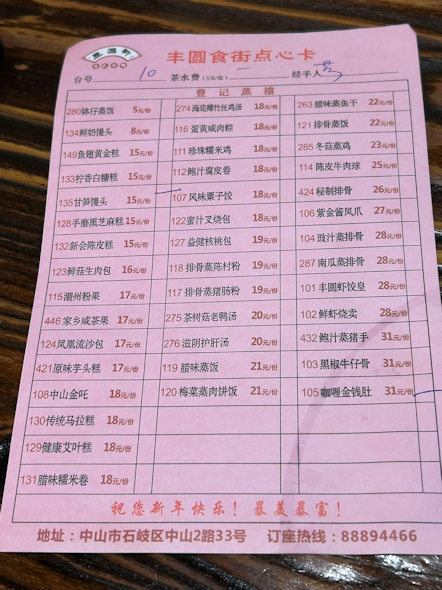 丰圆食街点心卡
台号 10 茶水费(5元/位) 一 经手人
登记蒸檔
280钵仔蒸饭 5元/份 274海底椰竹丝鸡汤 18元/份 263腊味蒸鱼干 22元/份
134鲜奶馒头 8元/份 116蛋黄咸肉粽 18元/份 121排骨蒸饭 22元/份
149鱼翅黄金糕 15元/份 111珍珠糯米鸡 18元/份 285冬菇蒸鸡 23元/份
133柠香白糖糕 15元/份 112鲍汁腐皮卷 18元/份 114陈皮牛肉球 25元/份
135甘笋馒头 15元/份 107风味粟子饺 18元/份 424秘制排骨 26元/份
128手磨黑芝麻糕 15元/份 122蜜汁叉烧包 18元/份 106紫金酱凤爪 27元/份
132新会陈皮糕 15元/份 127益健核桃包 19元/份 104豉汁蒸排骨 28元/份
123鲜菇生肉包 16元/份 118排骨蒸陈村粉 19元/份 287南瓜蒸排骨 28元/份
115潮州粉果 17元/份 117排骨蒸猪肠粉 19元/份 101丰圆虾饺皇 28元/份
446家乡咸茶果 17元/份 275茶树菇老鸭汤 20元/份 102鲜虾烧卖 28元/份
124凤凰流沙包 17元/份 276滋阴护肝汤 20元/份 432鲍汁蒸猪手 31元/份
421原味芋头糕 17元/份 119腊味蒸饭 21元/份 103黑椒牛仔骨 31元/份
108中山金吒 18元/份 120梅菜蒸肉饼饭 21元/份 105咖喱金钱肚 31元/份
130传统马拉糕 18元/份
129健康艾叶糕 18元/份
131腊味糯米卷 18元/份
祝您新年快乐！暴美暴富！
地址：中山市石岐区中山2路33号 订座热线：88894466